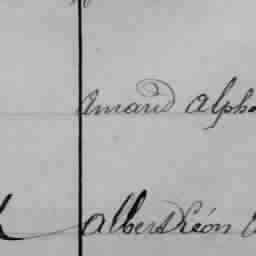 Amand Alpho
Albert Léon